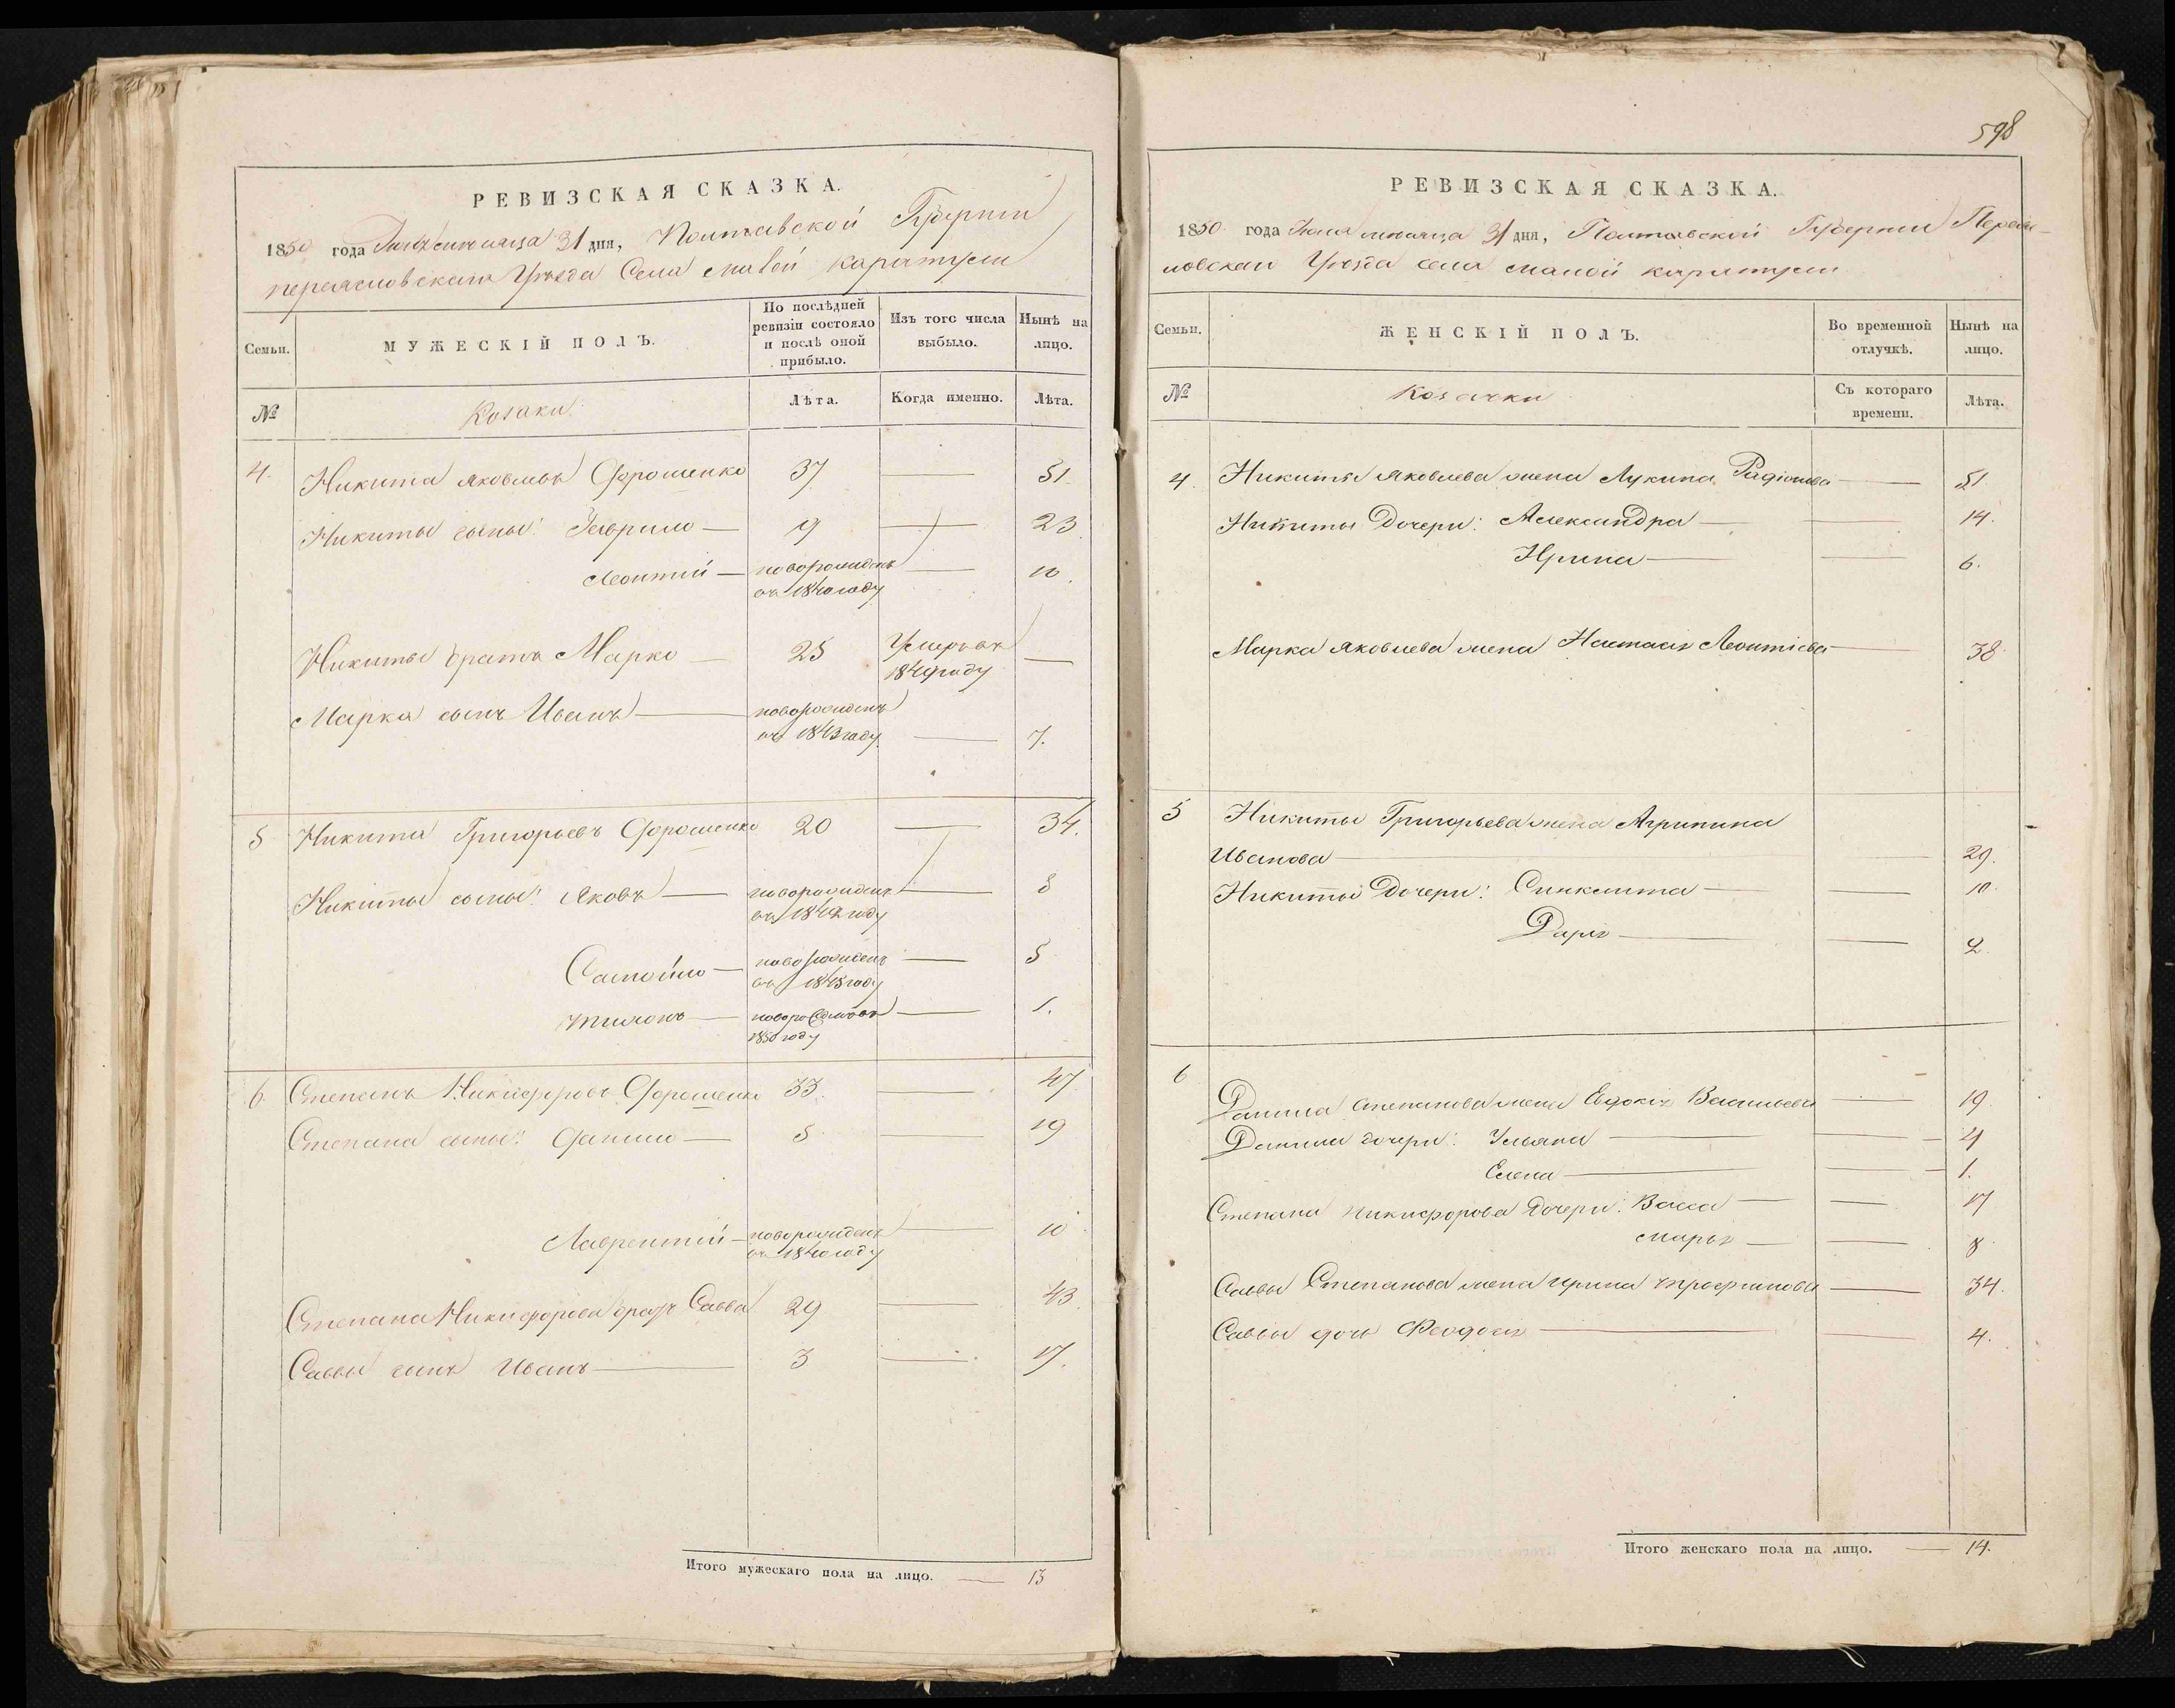 РЕВИЗСКАЯ СКАЗКА.
1850 года мѣсяца 31 дня, Полтавской Губерніи
переясловскаго Уѣзда Села малой каратули
Семьи.
МУЖЕСКІЙ ПОЛЪ.
По послѣдней ревизіи состояло и послѣ оной прибыло.
Изъ того числа выбыло.
Нынѣ на лицо.
№
Козаки
Лѣта.
Когда именно.
Лѣта.
4. Никита Яковлевъ Дорошенко 37 — 51.
Никиты сыны: Гаврило — 9 — 23.
Леонтій — новорожденъ въ 1840 году — 10.
Никиты братъ Марко — 25 Умеръ въ 1849 году —
Марка сынъ Иванъ — новорожденъ въ 1843 году — 7.
5 Никита Григорьевъ Дорошенко 20 — 34.
Никиты сыны: Яковъ — новорожденъ въ 1842 году — 8
Самойло — новорожденъ въ 1845 году — 5
Тихонъ — новорожденъ въ 1850 году — 1.
6. Степанъ Никифоровъ Дорошенко 33 — 47
Степана сыны: Данило — 5 — 19
Лаврентій — новорожденъ въ 1840 году — 10
Степана Никифорова братъ Савва 29 — 43.
Саввы сынъ Иванъ — 3 — 17.
Итого мужескаго пола на лицо. — 13
598
РЕВИЗСКАЯ СКАЗКА.
1850 года Іюля мѣсяца 31 дня, Полтавской Губерніи Переяс-
ловскаго Уѣзда села малой каратули
Семьи.
ЖЕНСКІЙ ПОЛЪ.
Во временной отлучкѣ.
Нынѣ на лицо.
№
Козачки
Съ котораго времени.
Лѣта.
4. Никиты Яковлева жена Лукина Радіонова — 51
Никиты Дочери: Александра — — 14.
Ирина — — 6.
Марка Яковлева жена Настасія Леонтіева — 38
5 Никиты Григорьева жена Агрипина
Иванова — — 29.
Никиты Дочери: Синклита — — 10.
Дарія — — 2.
6
Данила Степанова жена Евдокія Васильева — 19
Данила дочери: Ульяна — — 4
Елена — — 1.
Степана Никифорова Дочери: Васса — — 17
Марья — — 8
Саввы Степанова жена Ирина Трофимова — 34.
Саввы дочь Феодосія — — 4.
Итого женскаго пола на лицо. — 14.